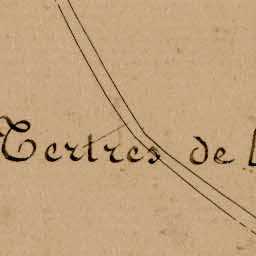 Tertres de